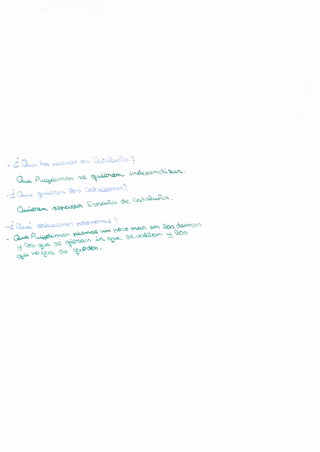 - ¿Que ha pasado en Cataluña?
Que Puigdemon se quieren independizar.
- ¿Que quieren los catalanes?
Quieren separar España de Cataluña.
- ¿Qué soluciones propones?
- Que Puigdemon piense un poco mas en los demas
y los que se quieran ir que se vallan y los
que no que se queden.